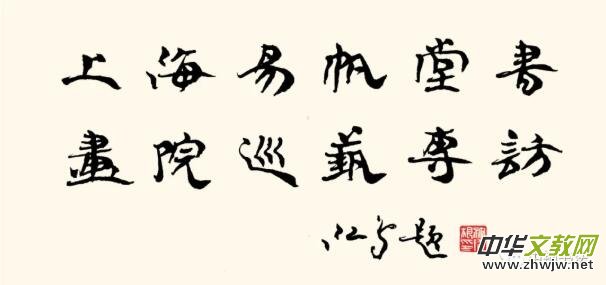 上海易帆堂書
畫院巡藝專訪
題
中华文教网
www.zhwjw.net